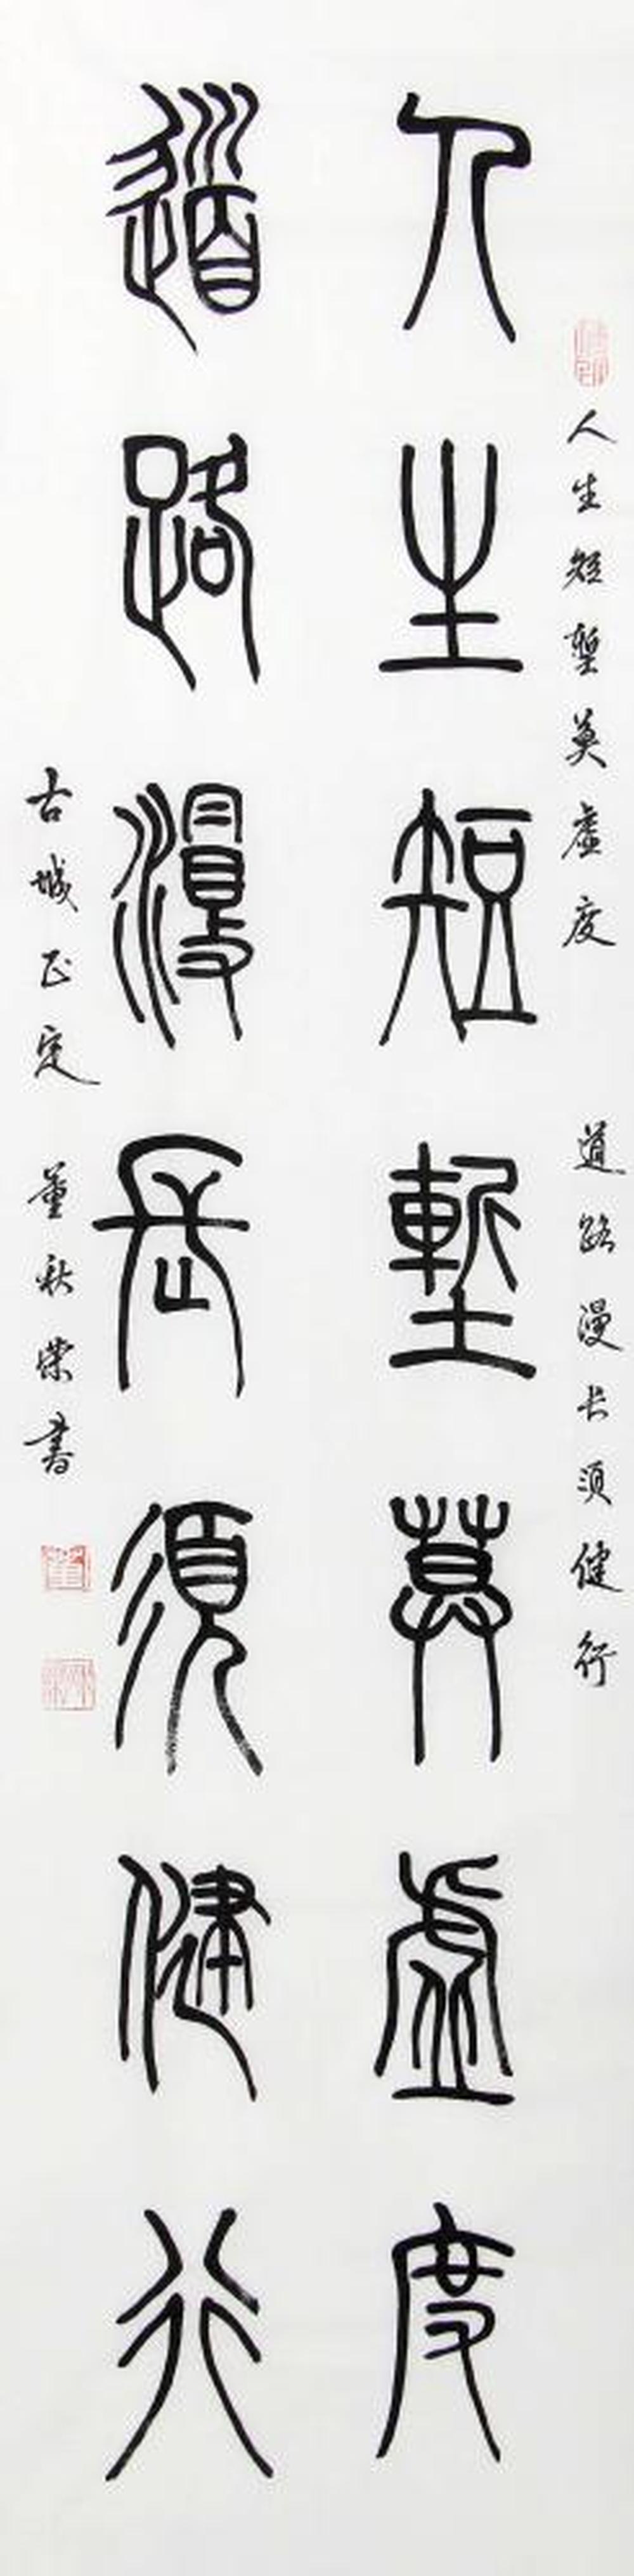 人生短塹莫虚度 道路漫长须健行
人生短塹莫虛度
道路漫長須健行
古城正定 董秋荣書